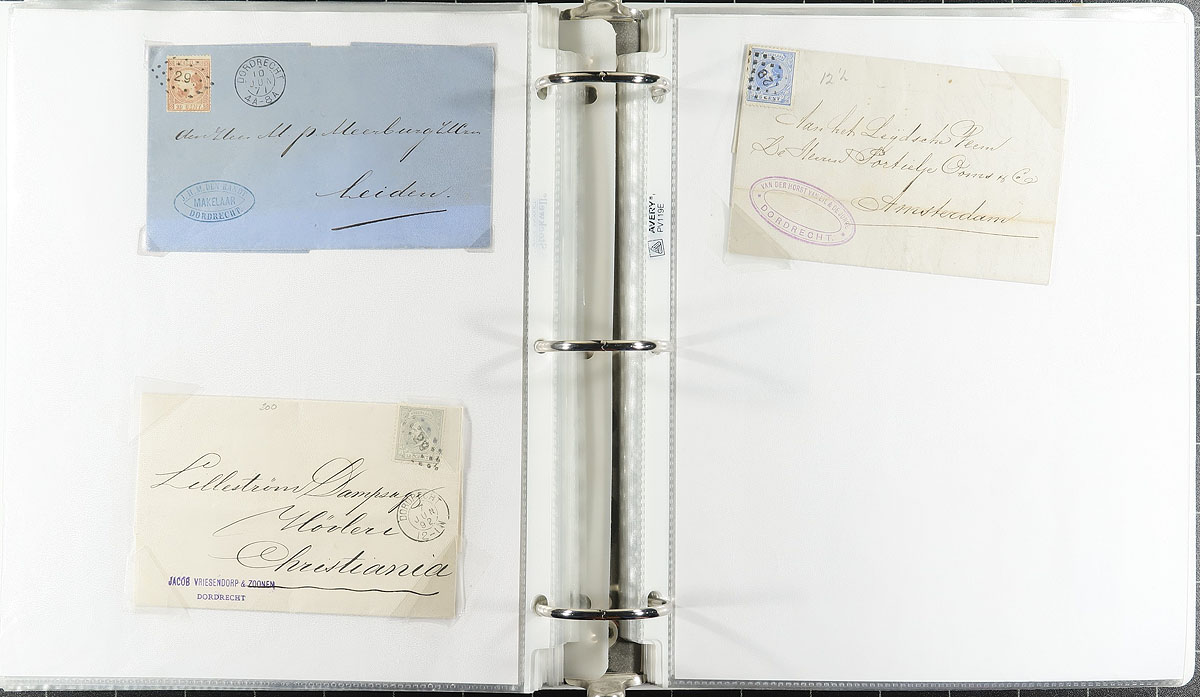 29
DORDRECHT
10
JUN
71
4A-8A
den Heer M P Meerburg
Leiden.
MAKELAAR
DORDRECHT
200
Lelleström Dampsag
Höderi
Christiania
DORDRECHT
JUN
92
12-1N
JACOB VRIESENDORP & ZOONEN
DORDRECHT
AVERY®
PV119E
CENT
12½
Aan het Leydsche Veem
De Heeren Portielje Ooms & Co
Amsterdam
VAN DER HORST
DORDRECHT.